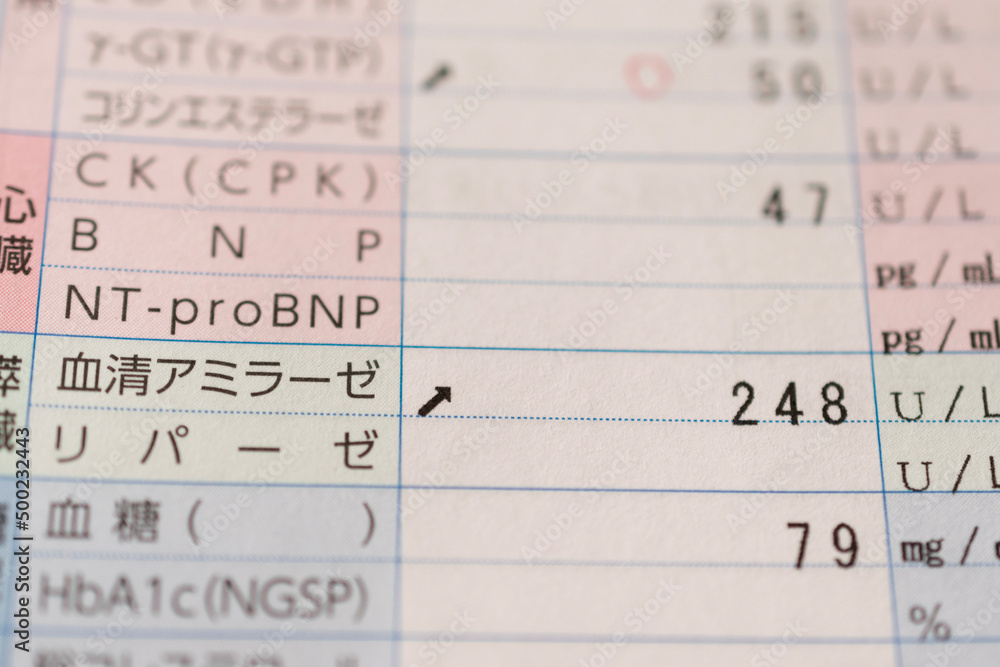 215 U/L
γ-GT(γ-GTP) 50 U/L
コリンエステラーゼ U/L
心臓
CK(CPK) 47 U/L
BNP pg/mL
NT-proBNP pg/ml
血清アミラーゼ ➚ 248 U/L
リパーゼ U/L
血糖( ) 79 mg/
HbA1c(NGSP) %
Adobe Stock | #500232443